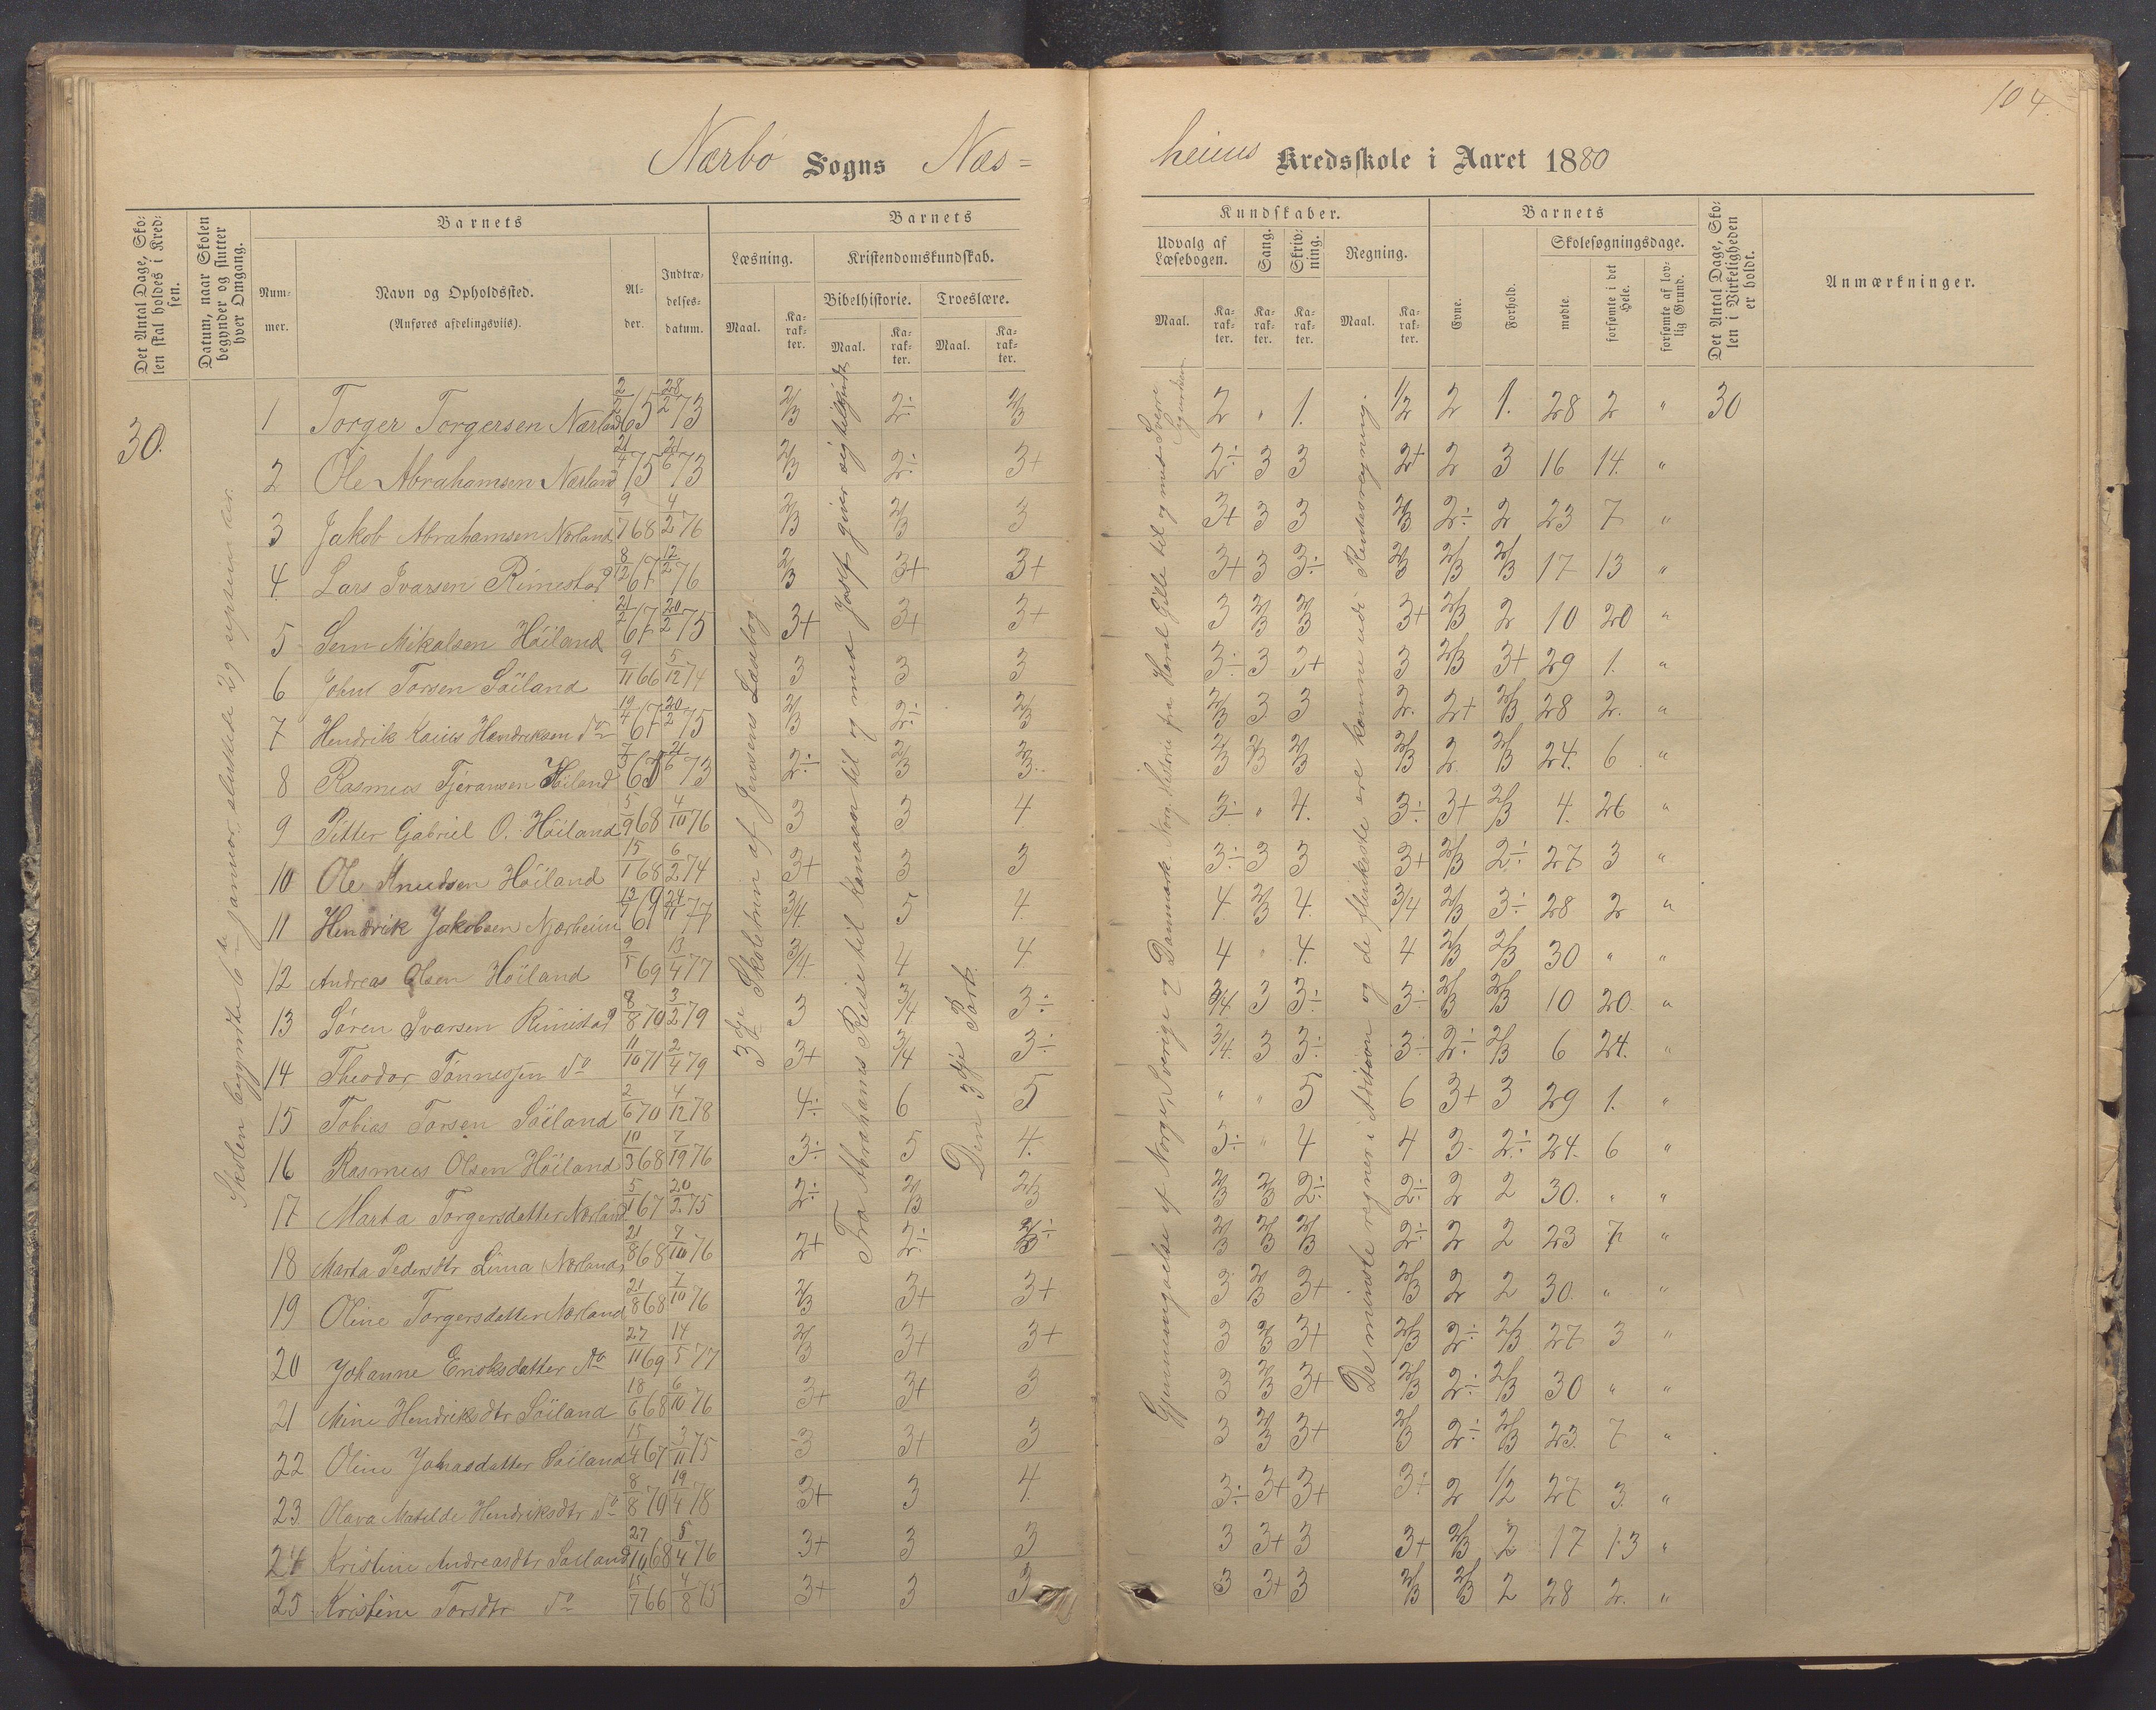 104.
Nærbø Sogns Næs=
heims Kredsskole i Aaret 1880
Det Antal Dage, Sko-
len skal holdes i Kred-
sen.
Datum, naar Skolen
begynder og slutter
hver Omgang.
Barnets
Num-
mer.
Navn og Opholdssted.
(Anføres afdelingsviis).
Al-
der.
Indtræ-
delses-
datum.
Barnets
Læsning.
Maal.
Ka-
rak-
ter.
Kristendomskundskab.
Bibelhistorie.
Maal.
Ka-
rak-
ter.
Troeslære.
Maal.
Ka-
rak-
ter.
Kundskaber.
Udvalg af
Læsebogen.
Maal.
Ka-
rak-
ter.
Sang.
Ka-
rak-
ter.
Skriv-
ning.
Ka-
rak-
ter.
Regning.
Maal.
Ka-
rak-
ter.
Barnets
Evne.
Forhold.
Skolesøgningsdage.
mødte.
forsømte i det
Hele.
forsømte af lov-
lig Grund.
Det Antal Dage, Sko-
len i Virkeligheden
er holdt.
Anmærkninger.
30.
Skolen begyndte 6te januar, sluttede 29
3dje Skoletrin af Jensens Læsebog
Fra Abrahams Reise til Kanaan til og med Josef giver sig tilkjende
Den 3dje Part.
Gjennemgaaelse af Norge, Sverige og Danmark. Norg. Historie fra Haral Gille til og med Sverre
Sigurdsen
De mindste regner i Adition og de flinkeste ere komne udi Rentesregning.
1 Torger Torgersen Nærland 2/2 65 28/2 73 2/3 2÷ 2/3 2 " 1. 1/2 2 1. 28 2 " 30
2 Ole Abrahamsen Nærland 21/4 75 21/6 73 2/3 2÷ 3+ 2÷ 3 3 2+ 2 3 16 14. "
3 Jakob Abrahamsen Nærland 9/7 68 4/2 76 2/3 2/3 3 3+ 3 3 2/3 2÷ 2 23 7 "
4. Lars Ivarsen Rimestad 8/12 67 12/2 76 2/3 3+ 3+ 3+ 3 3÷ 2/3 2/3 2/3 17 13 "
5 Sem Mikalsen Höiland 21/2 67 20/2 75 3+ 3+ 3+ 3 2/3 2/3 3+ 2/3 2 10 20 "
6 John Torsen Söiland 9/11 66 5/12 74 3 3 3 3÷ 3 3+ 3 2/3 3+ 29 1. "
7 Hendrik Hendriksen do 19/4 67 20/2 75 2/3 2÷ 2/3 2/3 3 3 2. 2+ 2/3 28 2. "
8 Rasmus Tjeransen Höiland 7/3 65 21/6 73 2÷ 2/3 2/3 2/3 2/3 2/3 2/3 2 2/3 24. 6 "
9 Pitter Gabriel O. Höiland 5/9 68 4/10 76 3 3 4 3÷ " 4. 3÷ 3+ 2/3 4. 26 "
10 Ole Knudsen Höiland 15/1 68 6/2 74 3+ 3 3 3÷ 3 3 3+ 2/3 2÷ 27 3 "
11 Hendrik Jakobsen Njærheim 13/7 69 24/11 77 3/4. 3 4 4. 2/3 4. 3/4 2/3 3÷ 28 2 "
12 Andreas Olsen Höiland 9/5 69 13/4 77 3/4. 4 4. 4 " 4. 4 2/3 2/3 30 " "
13 Sören Ivarsen Rimestad 8/8 70 3/2 79 3 3/4 3÷ 3/4. 3 3÷ 3÷ 2/3 2/3 10 20. "
14 Theodor Tönnesen do 11/10 71 2/4 79 3+ 3/4 3÷ 3/4. 3 3÷ 3÷ 2÷ 2/3 6 24. "
15 Tobias Torsen Söiland 2/6 70 4/12 78 4÷ 6 5 " " 5 6 3+ 3 29 1. "
16 Rasmus Olsen Höiland 10/3 68 7/19 76 3÷ 5 4. 3÷ " 4 4 3 2÷ 24. 6 "
17 Marta Torgersdatter Nærland 5/1 67 20/2 75 2÷ 2/3 2/3 2/3 2/3 2÷ 2÷ 2 2 30. " "
18 Marta Pedersdtr Lima Nærland 21/8 68 7/10 76 2+ 2÷ 2/3÷ 2/3 2/3 2/3 2÷ 2 2 23 7 "
19 Oline Torgersdatter Nærland 21/8 68 7/10 76 2/3 3+ 3+ 3 2/3 3+ 2/3 2 2 30. " "
20 Johanne Enoksdatter do 27/11 69 14/5 77 2/3 3+ 3+ 3 2/3 3+ 2/3 2÷ 2/3 27 3 "
21 Mine Hendriksdtr Söiland 18/6 68 6/10 76 3+ 3+ 3 3 2/3 3+ 2/3 2÷ 2/3 30 " "
22 Oline Jonasdatter Söiland 15/4 67 3/11 75 3 3+ 3 3 2/3 3+ 2/3 2÷ 2/3 23. 7 "
23 Olava Matilde Hendriksdtr do 8/8 70 19/4 78 3+ 3 4 3÷ 3+ 3+ 3+ 2 1/2 27 3. "
24 Kristine Andreasdtr Söiland 27/10 68 5/4 76 3+ 3 3 3 3+ 3 3+ 2/3 2 17 13 "
25 Kristine Torsdtr do 15/7 66 4/8 75 3+ 3 3 3 3+ 3 2/3 2/3 2 28 2. "